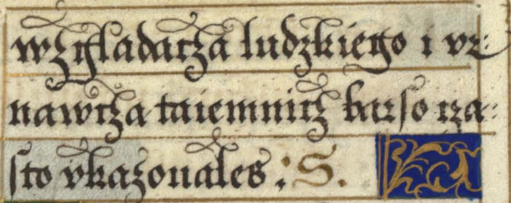 wzgladacża ludzkiego i vz:
nawcża taiemnicż barso cza:
sto vkazonales : S.